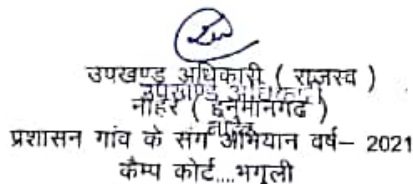 उपखण्ड अधिकारी ( राजस्व )
नोहर ( हनुमानगढ )
प्रशासन गांव के संग अभियान वर्ष– 2021
कैम्प कोर्ट....भगूली